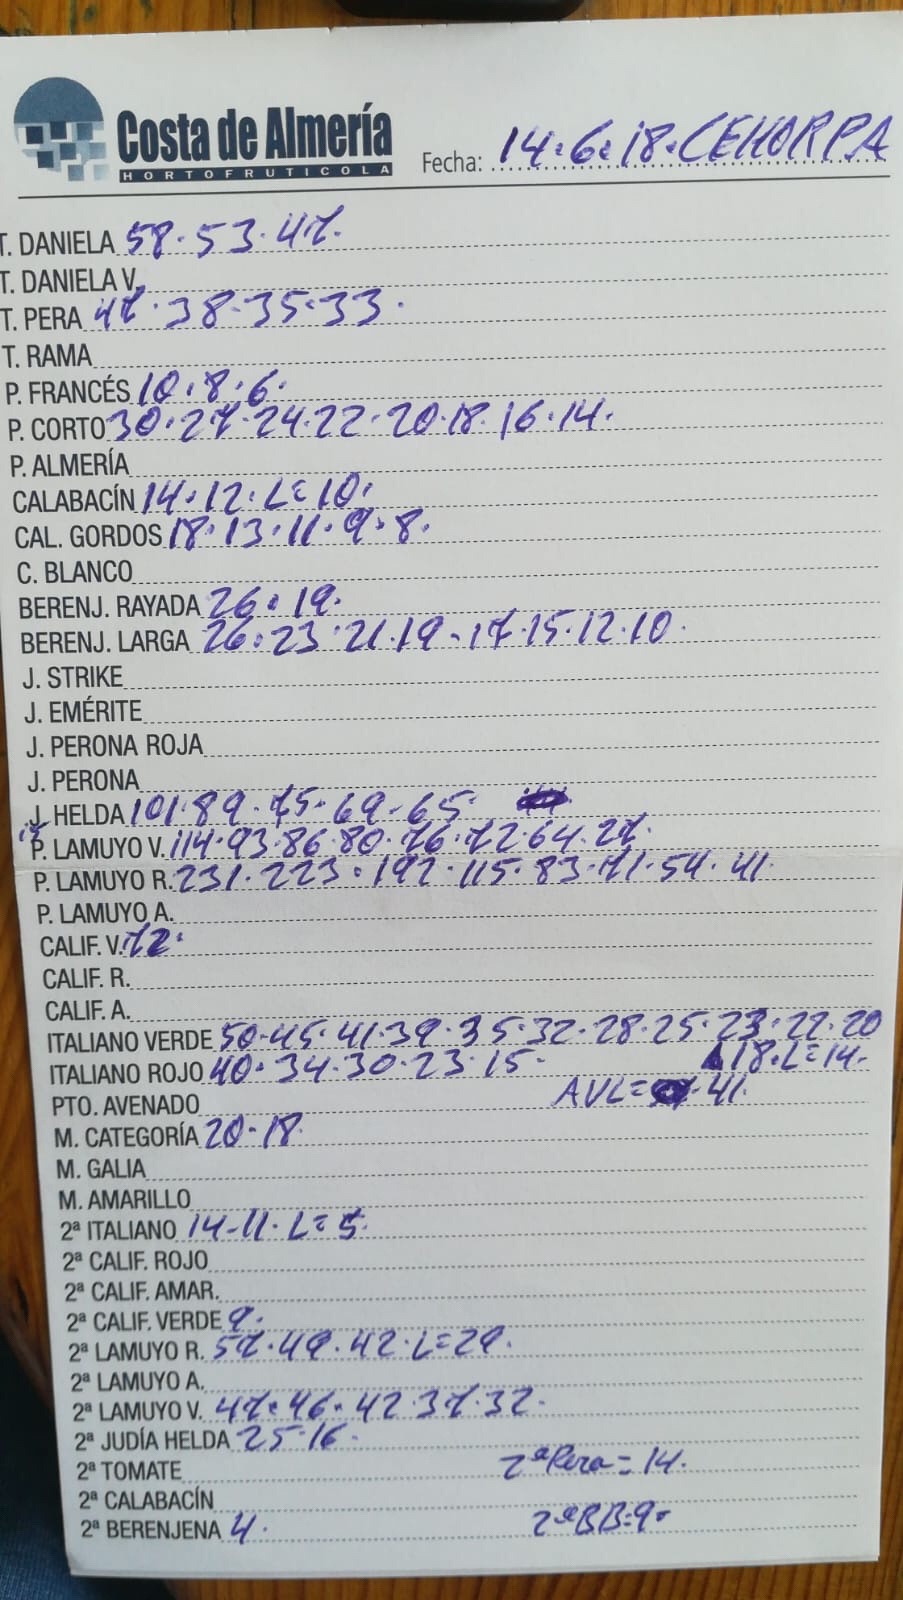 Costa de Almería
HORTOFRUTICOLA
Fecha: 14.6.18.CEHORPA
T. DANIELA 58.53.47.
T. DANIELA V.
T. PERA 47.38.35.33.
T. RAMA
P. FRANCÉS 10.8.6.
P. CORTO 30.27.24.22.20.18.16.14.
P. ALMERÍA
CALABACÍN 14.12.L=10.
CAL. GORDOS 18.13.11.9.8.
C. BLANCO
BERENJ. RAYADA 26.19.
BERENJ. LARGA 26.23.21.19.17.15.12.10.
J. STRIKE
J. EMÉRITE
J. PERONA ROJA
J. PERONA
J. HELDA 101.89.75.69.65.
P. LAMUYO V. 114.93.86.80.76.72.64.27.
P. LAMUYO R. 231.223.192.115.83.71.54.41.
P. LAMUYO A.
CALIF. V. 72.
CALIF. R.
CALIF. A.
ITALIANO VERDE 50.45.41.39.35.32.28.25.23.22.20
18.L=14.
ITALIANO ROJO 40.34.30.23.15.
PTO. AVENADO AVL= 41.
M. CATEGORÍA 20.18.
M. GALIA
M. AMARILLO
2ª ITALIANO 14-11.L=5.
2ª CALIF. ROJO
2ª CALIF. AMAR.
2ª CALIF. VERDE 9.
2ª LAMUYO R. 57.49.42.L=29.
2ª LAMUYO A.
2ª LAMUYO V. 47.46.42.37.32.
2ª JUDÍA HELDA 25.16.
2ª TOMATE 2ªPera=14.
2ª CALABACÍN
2ª BERENJENA 4. 2ªBB=9.